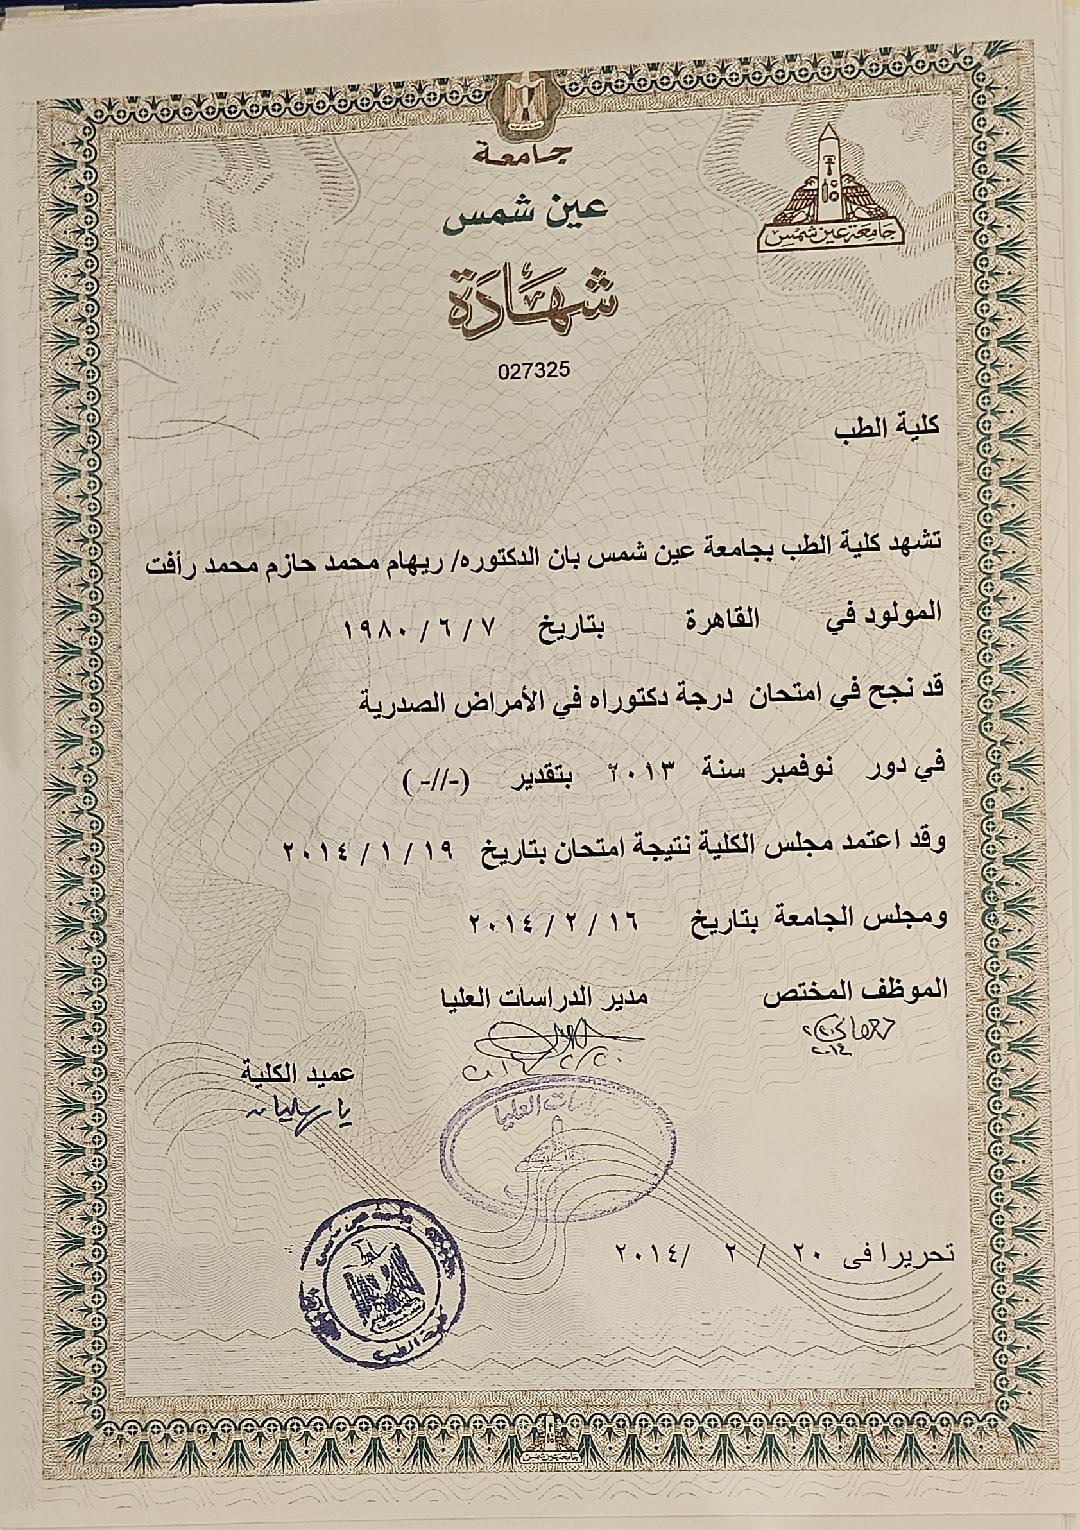 جامعة
عين شمس
جامعة عين شمس
شهادة
027325
كلية الطب
تشهد كلية الطب بجامعة عين شمس بان الدكتوره/ ريهام محمد حازم محمد رأفت
المولود في القاهرة بتاريخ ٧ / ٦ / ١٩٨٠
قد نجح في امتحان درجة دكتوراه في الأمراض الصدرية
في دور نوفمبر سنة ٢٠١٣ بتقدير (-//-)
وقد اعتمد مجلس الكلية نتيجة امتحان بتاريخ ١٩ / ١ / ٢٠١٤
ومجلس الجامعة بتاريخ ١٦ / ٢ / ٢٠١٤
الموظف المختص
مدير الدراسات العليا
عميد الكلية
العليا
تحريرا فى ٢٠ / ٢ / ٢٠١٤
كلية الطب